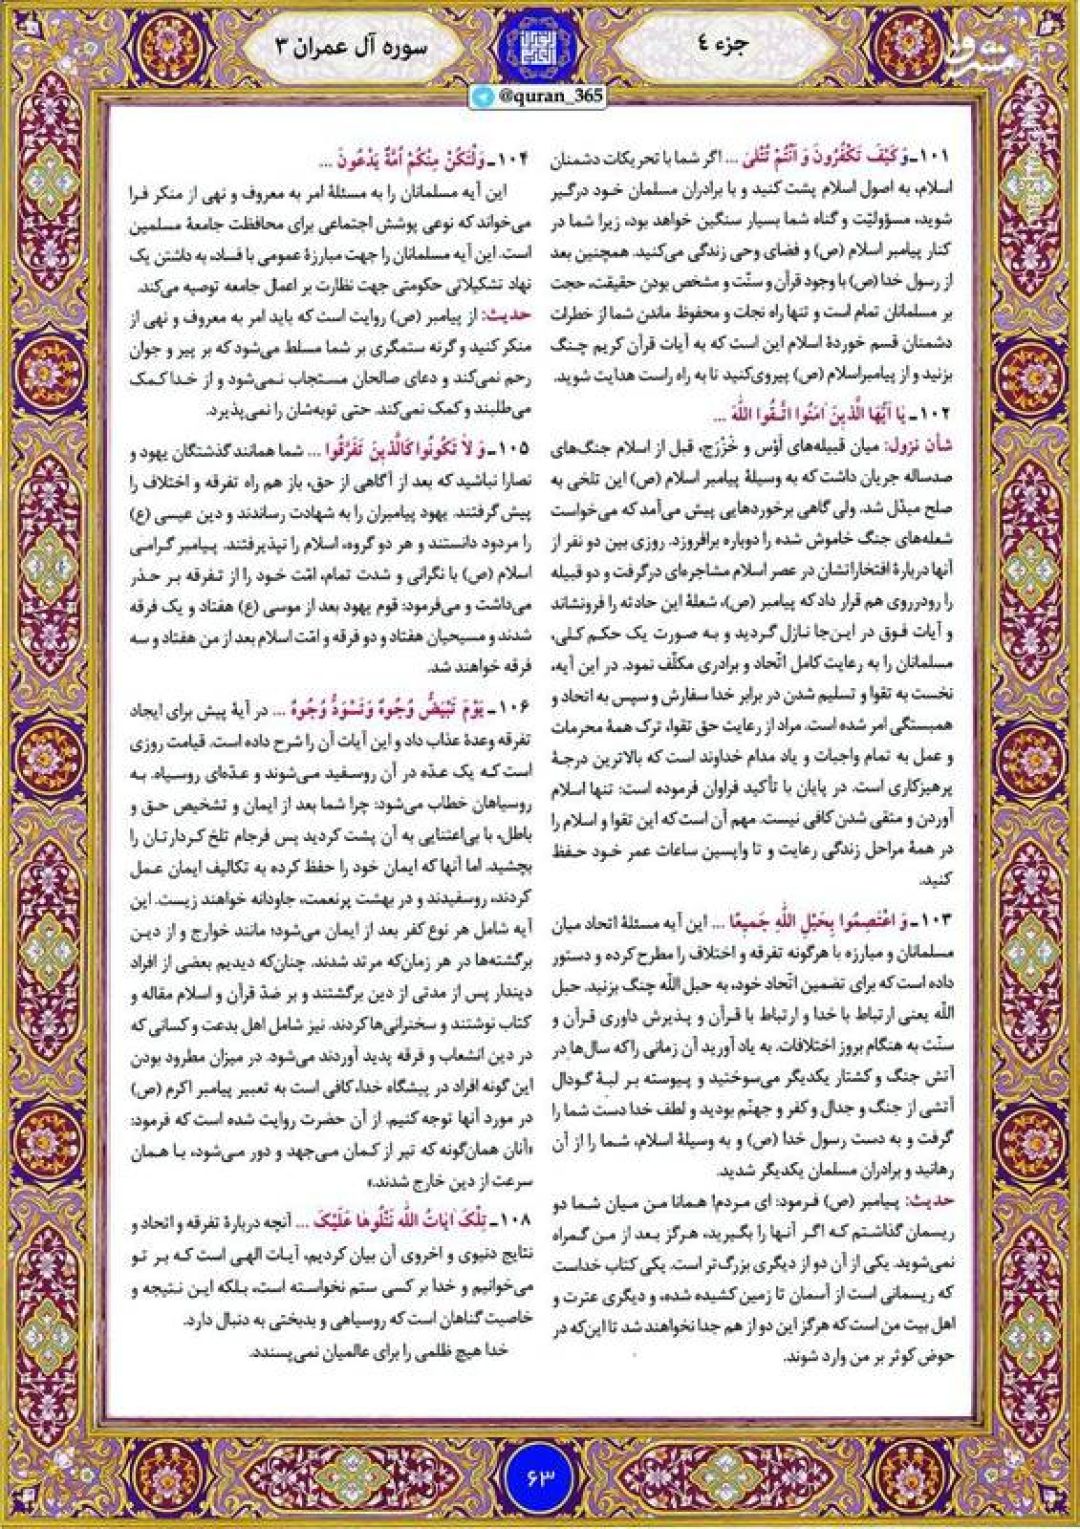 جزء ۴
سوره آل عمران ۳
مشرق
@quran_365
۱۰۱ـ وَ كَيْفَ تَكْفُرُونَ وَ اَنْتُمْ تُتْلىٰ ... اگر شما با تحریکات دشمنان
اسلام، به اصول اسلام پشت کنید و با برادران مسلمان خود درگیر
شوید، مسؤولیّت و گناه شما بسیار سنگین خواهد بود، زیرا شما در
کنار پیامبر اسلام (ص) و فضای وحی زندگی می‌کنید. همچنین بعد
از رسول خدا (ص) با وجود قرآن و سنّت و مشخص بودن حقیقت، حجت
بر مسلمانان تمام است و تنها راه نجات و محفوظ ماندن شما از خطرات
دشمنان قسم خوردهٔ اسلام این است که به آیات قرآن کریم چنگ
بزنید و از پیامبراسلام (ص) پیروی‌کنید تا به راه راست هدایت شوید.
۱۰۲ـ يٰا اَيُّهَا الَّذينَ اٰمَنُوا اتَّقُوا اللّٰهَ ...
شأن نزول: میان قبیله‌های اَوْس و خَزْرَج، قبل از اسلام جنگ‌های
صدساله جریان داشت که به وسیلهٔ پیامبر اسلام (ص) این تلخی به
صلح مبدّل شد. ولی گاهی برخوردهایی پیش می‌آمد که می‌خواست
شعله‌های جنگ خاموش شده را دوباره برافروزد. روزی بین دو نفر از
آنها دربارهٔ افتخاراتشان در عصر اسلام مشاجره‌ای درگرفت و دو قبیله
را رودرروی هم قرار داد که پیامبر (ص)، شعلهٔ این حادثه را فرونشاند
و آیات فوق در این‌جا نازل گردید و به صورت یک حکم کلی،
مسلمانان را به رعایت کامل اتّحاد و برادری مکلّف نمود. در این آیه،
نخست به تقوا و تسلیم شدن در برابر خدا سفارش و سپس به اتحاد و
همبستگی امر شده است. مراد از رعایت حق تقوا، ترک همهٔ محرمات
و عمل به تمام واجبات و یاد مدام خداوند است که بالاترین درجهٔ
پرهیزکاری است. در پایان با تأکید فراوان فرموده است: تنها اسلام
آوردن و متقی شدن کافی نیست. مهم آن است که این تقوا و اسلام را
در همهٔ مراحل زندگی رعایت و تا واپسین ساعات عمر خود حفظ
کنید.
۱۰۳ـ وَ اعْتَصِمُوا بِحَبْلِ اللّٰهِ جَميعًا ... این آیه مسئلهٔ اتحاد میان
مسلمانان و مبارزه با هرگونه تفرقه و اختلاف را مطرح کرده و دستور
داده است که برای تضمین اتّحاد خود، به حبل اللّه چنگ بزنید. حبل
اللّه یعنی ارتباط با خدا و ارتباط با قرآن و پذیرش داوری قرآن و
سنّت به هنگام بروز اختلافات. به یاد آورید آن زمانی را که سال‌ها در
آتش جنگ و کشتار یکدیگر می‌سوختید و پیوسته بر لبهٔ گودال
آتشی از جنگ و جدال و کفر و جهنّم بودید و لطف خدا دست شما را
گرفت و به دست رسول خدا (ص) و به وسیلهٔ اسلام، شما را از آن
رهانید و برادران مسلمان یکدیگر شدید.
حدیث: پیامبر (ص) فرمود: ای مردم! همانا من میان شما دو
ریسمان گذاشتم که اگر آنها را بگیرید، هرگز بعد از من گمراه
نمی‌شوید. یکی از آن دو از دیگری بزرگ‌تر است. یکی کتاب خداست
که ریسمانی است از آسمان تا زمین کشیده شده، و دیگری عترت و
اهل بیت من است که هرگز این دو از هم جدا نخواهند شد تا این‌که در
حوض کوثر بر من وارد شوند.
۱۰۴ـ وَلْتَكُنْ مِنْكُمْ اُمَّةٌ يَدْعُونَ ...
این آیه مسلمانان را به مسئلهٔ امر به معروف و نهی از منکر فرا
می‌خواند که نوعی پوشش اجتماعی برای محافظت جامعهٔ مسلمین
است. این آیه مسلمانان را جهت مبارزهٔ عمومی با فساد، به داشتن یک
نهاد تشکیلاتی حکومتی جهت نظارت بر اعمال جامعه توصیه می‌کند.
حدیث: از پیامبر (ص) روایت است که باید امر به معروف و نهی از
منکر کنید و گرنه ستمگری بر شما مسلط می‌شود که بر پیر و جوان
رحم نمی‌کند و دعای صالحان مستجاب نمی‌شود و از خدا کمک
می‌طلبند و کمک نمی‌کند. حتی توبه‌شان را نمی‌پذیرد.
۱۰۵ـ وَ لاٰ تَكُونُوا كَالَّذينَ تَفَرَّقُوا ... شما همانند گذشتگان یهود و
نصارا نباشید که بعد از آگاهی از حق، باز هم راه تفرقه و اختلاف را
پیش گرفتند. یهود پیامبران را به شهادت رساندند و دین عیسی (ع)
را مردود دانستند و هر دو گروه، اسلام را نپذیرفتند. پیامبر گرامی
اسلام (ص) با نگرانی و شدت تمام، امّت خود را از تفرقه بر حذر
می‌داشت و می‌فرمود: قوم یهود بعد از موسی (ع) هفتاد و یک فرقه
شدند و مسیحیان هفتاد و دو فرقه و امّت اسلام بعد از من هفتاد و سه
فرقه خواهند شد.
۱۰۶ـ يَوْمَ تَبْيَضُّ وُجُوهٌ وَتَسْوَدُّ وُجُوهٌ ... در آیهٔ پیش برای ایجاد
تفرقه وعدهٔ عذاب داد و این آیات آن را شرح داده است. قیامت روزی
است که یک عدّه در آن روسفید می‌شوند و عدّه‌ای روسیاه. به
روسیاهان خطاب می‌شود: چرا شما بعد از ایمان و تشخیص حق و
باطل، با بی‌اعتنایی به آن پشت کردید پس فرجام تلخ کردارتان را
بچشید. اما آنها که ایمان خود را حفظ کرده به تکالیف ایمان عمل
کردند، روسفیدند و در بهشت پرنعمت، جاودانه خواهند زیست. این
آیه شامل هر نوع کفر بعد از ایمان می‌شود؛ مانند خوارج و از دین
برگشته‌ها در هر زمان‌که مرتد شدند. چنان‌که دیدیم بعضی از افراد
دیندار پس از مدتی از دین برگشتند و بر ضدّ قرآن و اسلام مقاله و
کتاب نوشتند و سخنرانی‌ها کردند. نیز شامل اهل بدعت و کسانی که
در دین انشعاب و فرقه پدید آوردند می‌شود. در میزان مطرود بودن
این گونه افراد در پیشگاه خدا، کافی است به تعبیر پیامبر اکرم (ص)
در مورد آنها توجه کنیم. از آن حضرت روایت شده است که فرمود:
«آنان همان‌گونه که تیر از کمان می‌جهد و دور می‌شود، با همان
سرعت از دین خارج شدند.»
۱۰۸ـ تِلْكَ اٰيٰاتُ اللّٰهِ نَتْلُوهٰا عَلَيْكَ ... آنچه دربارهٔ تفرقه و اتحاد و
نتایج دنیوی و اخروی آن بیان کردیم، آیـات الهی است که بر تو
می‌خوانیم و خدا بر کسی ستم نخواسته است، بلکه این نتیجه و
خاصیت گناهان است که روسیاهی و بدبختی به دنبال دارد.
خدا هیچ ظلمی را برای عالمیان نمی‌پسندد.
۶۳